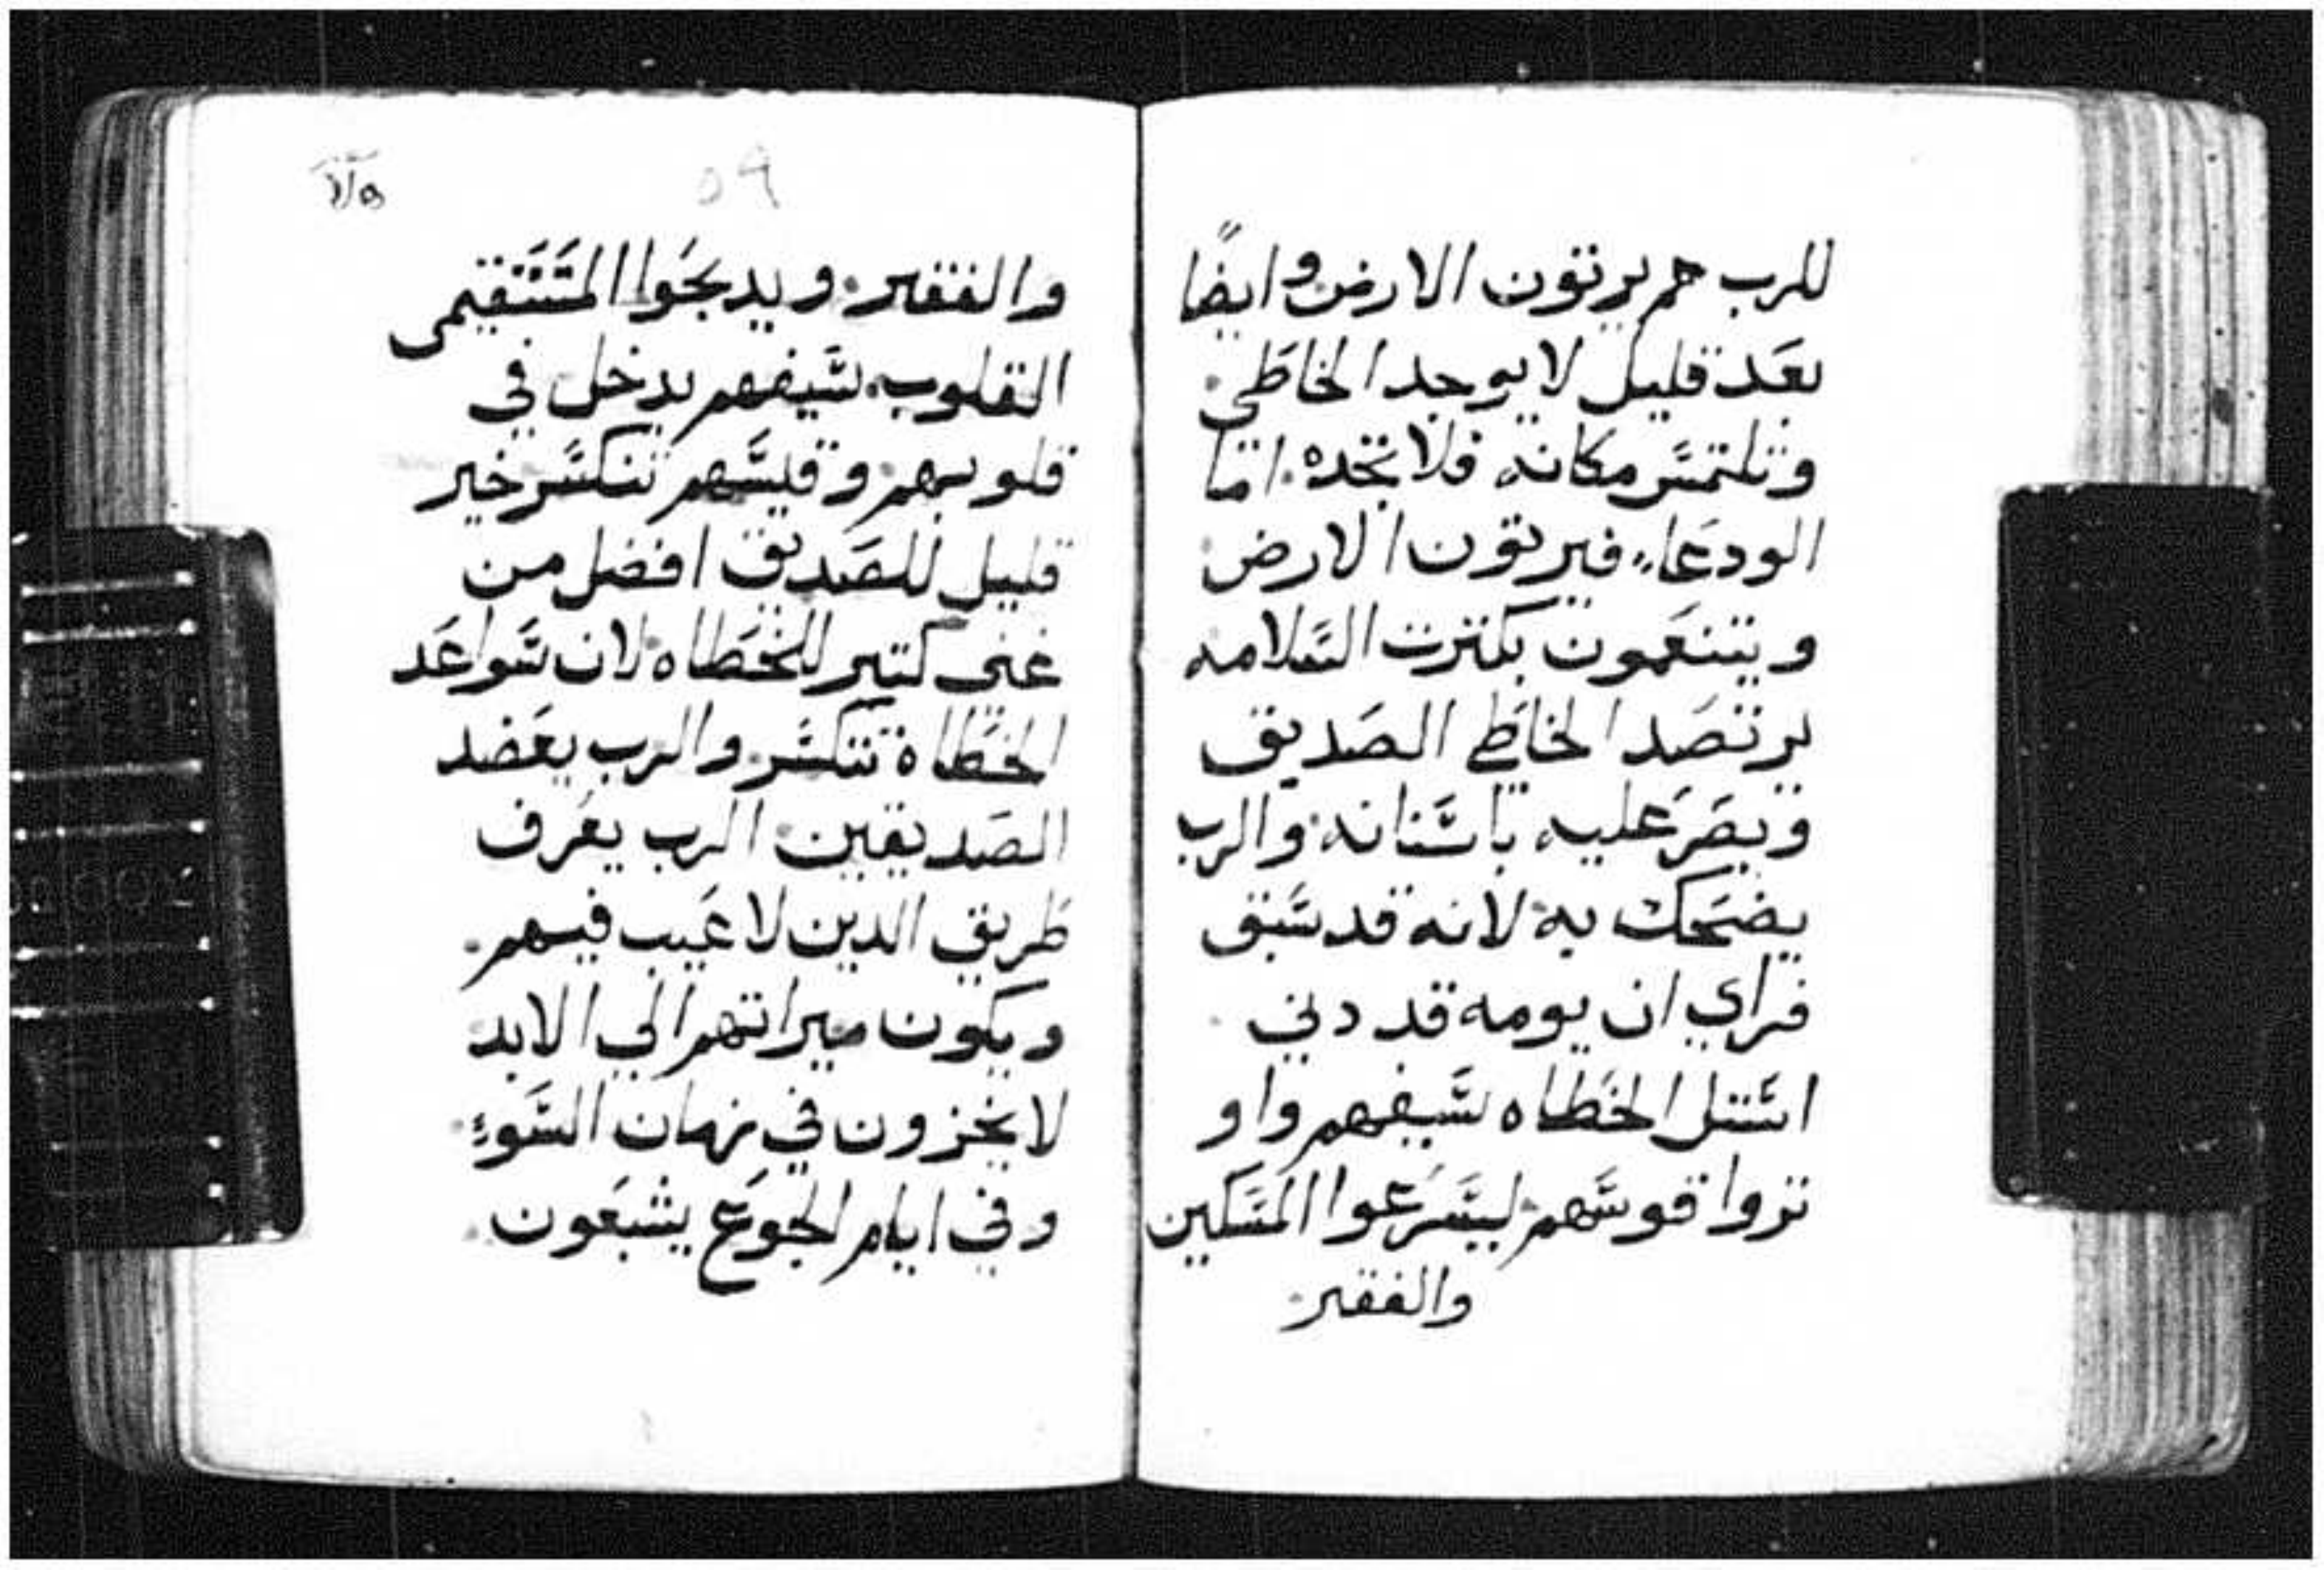 للرب هم يرتون الارض وايضًا
بعد قليل لا يوجد الخاطي
وتلتمس مكانه فلا تجده. اما
الودعاء، فيرتون الارض
ويتنعمون بكترت السلامه
يرتصد الخاطي الصديق
ويصر عليه باسنانه والرب
يضحك به لانه قد سبق
فراي ان يومه قد دني
استل الخطاه سيفهم واو
تروا قوسهم ليسرعوا المسكين
والفقير
٥٩
والفقير. ويدبحوا المستقيمى
القلوب. سيفهم يدخل في
قلوبهم وقيسهم تنكسر خير
قليل للصديق افضل من
غنى كتير للخطاه لان سواعد
الخطاة تنكسر والرب يعضد
الصديقين الرب يعرف
طريق الدين لا عيب فيهم.
ويكون ميراتهم الي الابد
لا يخزون في زمان السوء
وفي ايام الجوع يشبعون